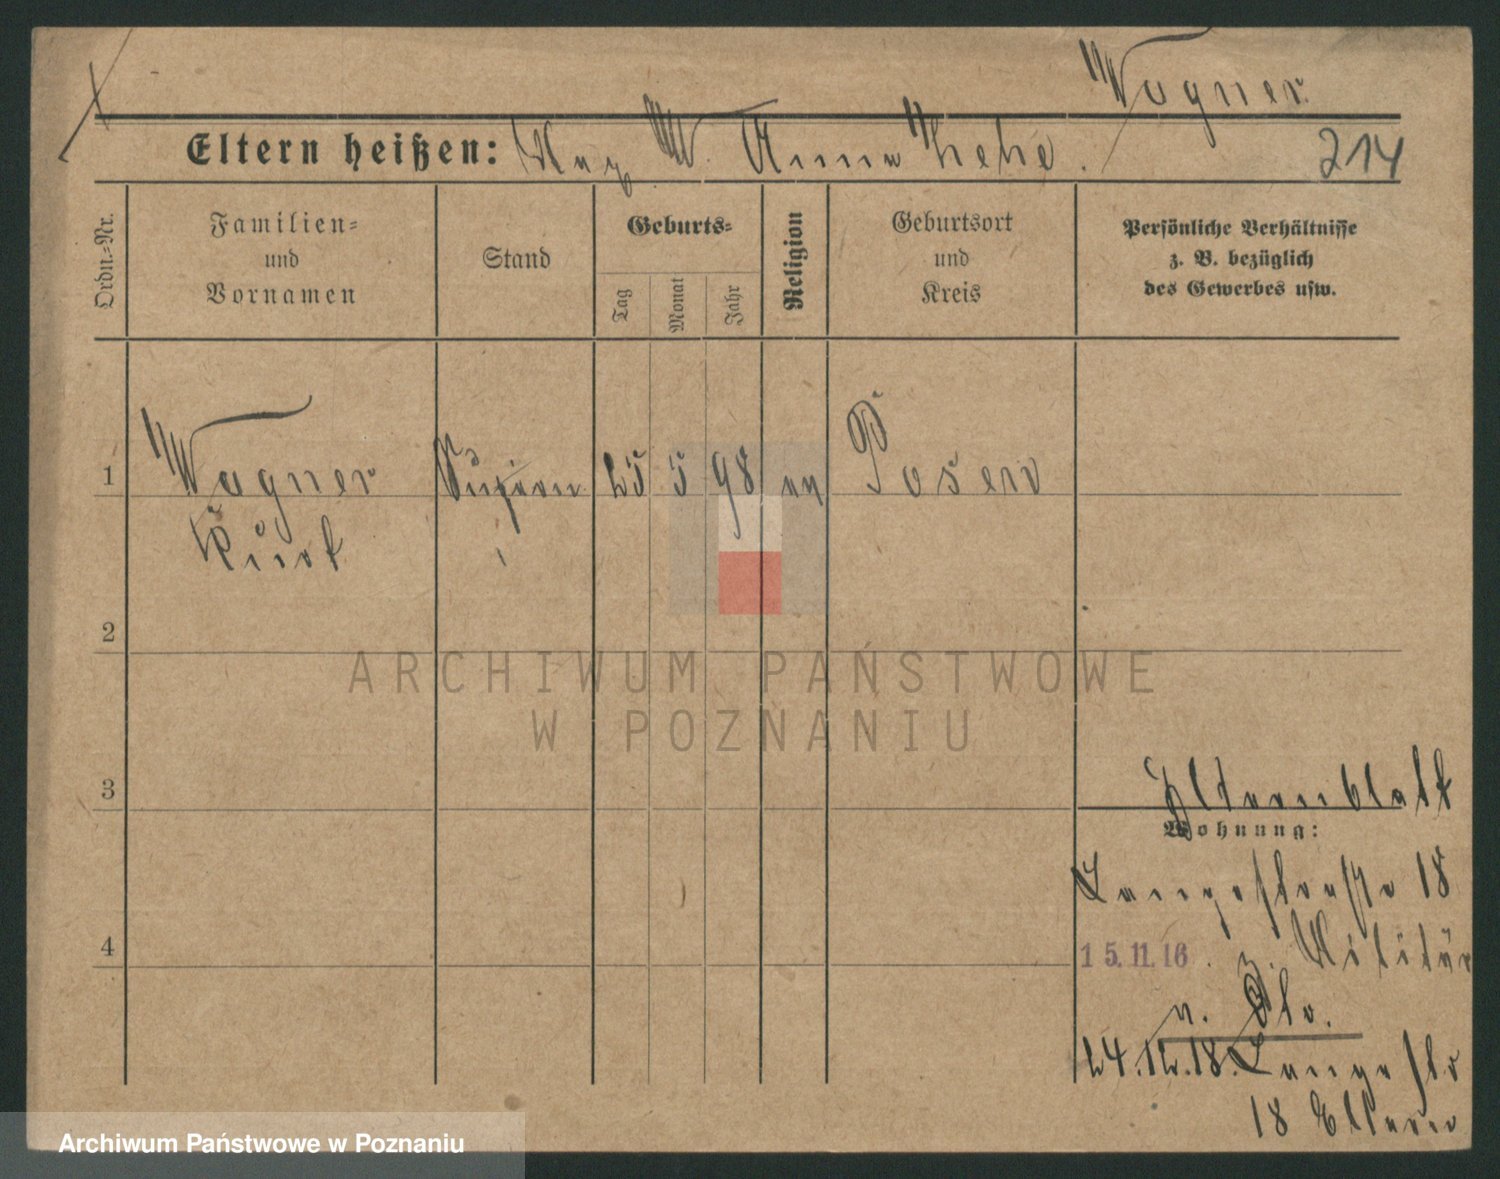 Wagner
Eltern heißen: Max W. Anna
214
Ordn.-Nr.
Familien-
und
Vornamen
Stand
Geburts-
Tag
Monat
Jahr
Religion
Geburtsort
und
Kreis
Persönliche Verhältnisse
z. B. bezüglich
des Gewerbes usw.
1
Wagner 25 5 98 Posen
Kurt
2
ARCHIWUM PAŃSTWOWE
W POZNANIU
3
Elternblatt
Wohnung:
Langestraße 18
4
15.11.16. z. Militär
24.12.18. Langestr
18 Eltern
Archiwum Państwowe w Poznaniu